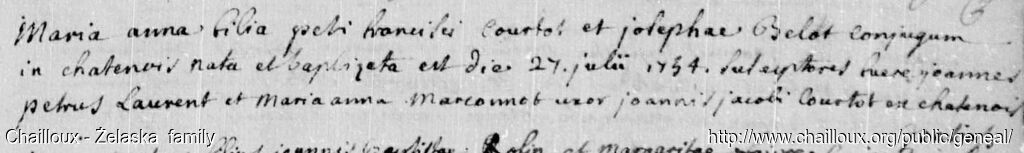 Maria anna filia petri francisci Courtot et josephae Belot conjugum
in chatenois nata et baptizata est die 27. julii 1754. susceptores fuere joannes
petrus Laurent et Maria anna Marconnot uxor joannis jacobi Courtot ex chatenois
Chailloux - Żelaska family
http://www.chailloux.org/public/geneal/
Rolin et margaritae